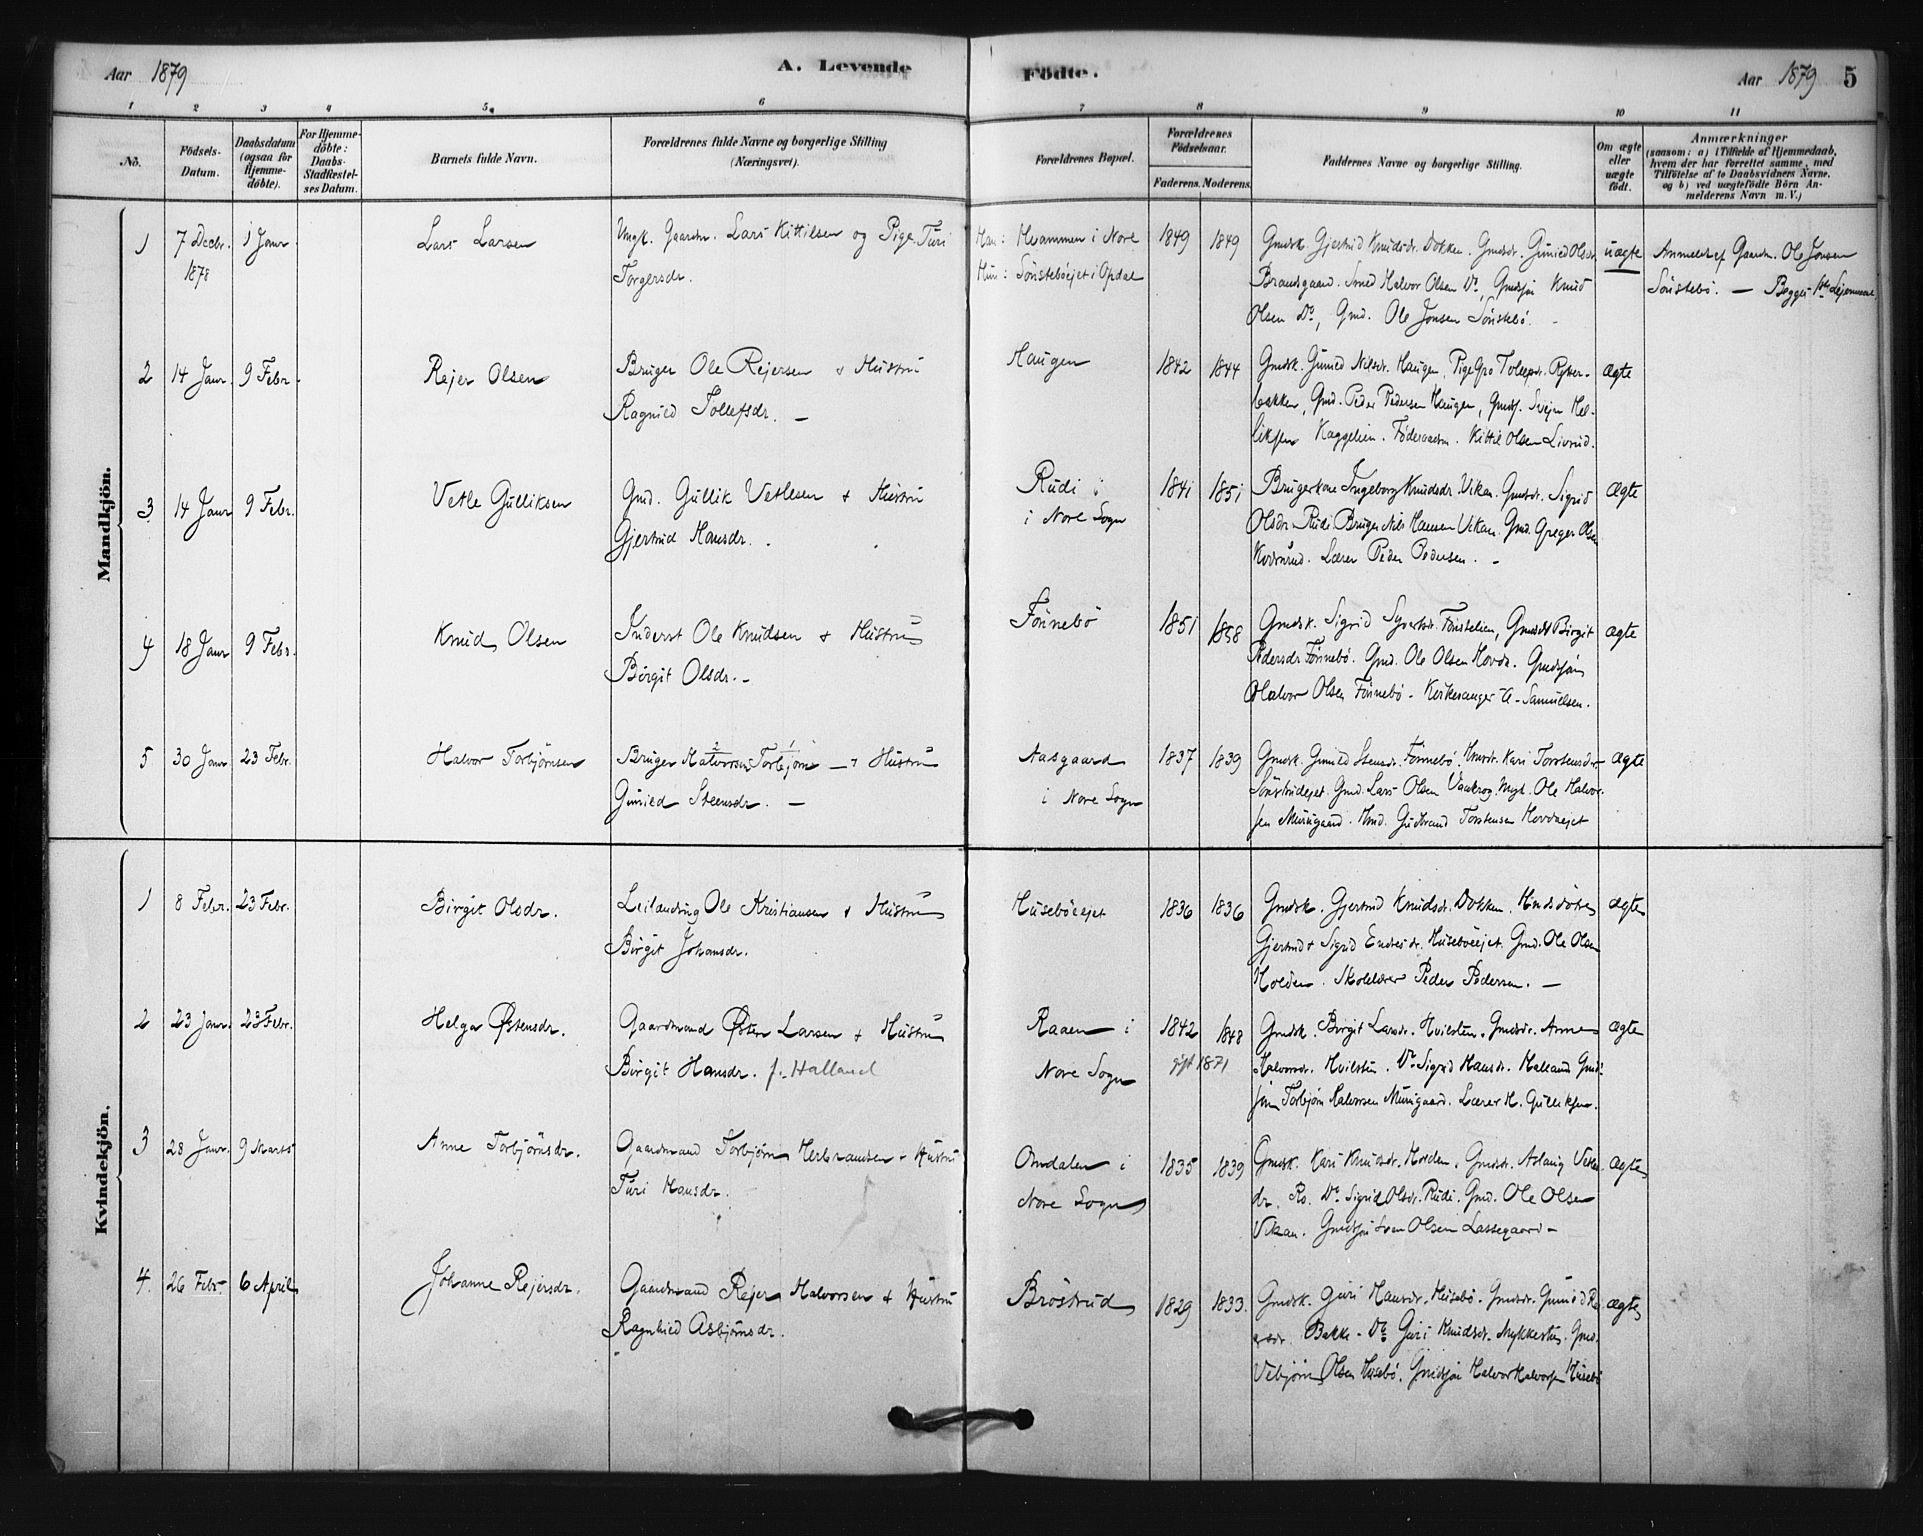 Aar 1879
A. Levende
Födte.
Aar 1879 5
1 2 3 4 5 6 7 8 9 10 11
No.
Födsels-
Datum.
Daabsdatum
(ogsaa for
Hjemme-
döbte).
For Hjemme-
döbte:
Daabs-
Stadfæstel-
ses Datum.
Barnets fulde Navn.
Forældrenes fulde Navne og borgerlige Stilling
(Næringsvei).
Forældrenes Bopæl.
Forældrenes
Födselsaar.
Faderens. Moderens.
Faddernes Navne og borgerlige Stilling.
Om ægte
eller
uægte
födt.
Anmærkninger
(saasom: a) i Tilfælde af Hjemmedaab,
hvem der har forrettet samme, med
Tilföielse af to Daabsvidners Navne.
og b) ved uægtefödte Börn An-
melderens Navn m. V.)
Mandkjön.
1 7 Decbr. 1 Janr Lars Larsen Ungk. Gaardm. Lars Kittilsen og Pige Turi
1878 Torgersdr.
Han: Hvammen i Nore 1849 1849 Gmdsk. Gjertrud Knudsdr. Dokken. Gmdsdr. Gunild Olsdr. uægte Anmeldt af Gaardm. Ole Jonsen
Hun: Sönsteböeiet i Opdal Brandsgaard. Smed Halvor Olsen Do, Gmdssön Knud Sönstebö. — Begges 1ste Leiermaal
Olsen Do, Gmd. Ole Jonsen Sönstebö.
2 14 Janr. 9 Febr. Rejer Olsen Bruger Ole Rejersen & Hustru
Ragnild Tollefsdr. —
Haugen 1842 1844 Gmdsk. Gunild Nilsdr. Haugen, Pige Gro Tollefsdr.
bakken, Gmd. Peder Pedersen Haugen, Gmds. Svejn Hel-
liksen Kaggelien. Föderaadm. Kittil Olsen Livrud.
ægte
3 14 Janr 9 Febr. Vetle Gulliksen Gmd. Gullik Vetlesen & Hustru
Gjertrud Hansdr.
Rudi i 1841 1851 Brugerkone Ingeborg Knudsdr. Vikan. Gmdsdr. Sigrid ægte
i Nore Sogn Olsdr. Rudi. Bruger Nils Hansen Vikan. Gmd. Greger Olsen
Lærer Peder Pedersen. —
4 18 Janr 9 Febr. Knud Olsen Inderst Ole Knudsen & Hustru
Birgit Olsdr. —
Fönnebö 1851 1858 Gmdsk. Sigrid Syvertsdr. Fönstelien, Gmdsdt Birgit ægte
Pedersdr Fönnebö. Gmd. Ole Olsen Hovde. Gmdssön
Halvor Olsen Fönnebö - Kirkesanger A. Samuelsen.
5 30 Janr 23 Febr. Halvor Torbjörnsen Bruger Halvorsen Torbjörn — & Hustru
Gunild Steensdr. —
Aasgaard 1837 1839 Gmdsk. Gunild Steensdr. Fönnebö. Hmdsdr. Kari Torstensdr. ægte
i Nore Sogn Gmd. Lars Olsen Vaakrog. Ungk. Ole Halvor-
sen Mursgaard. Hmd. Gudbrand Torstensen Hovdeejet
Kvindekjön.
1 8 Febr. 23 Febr. Birgit Olsdr. Leilænding Ole Kristiansen & Hustru
Birgit Johansdr.
Huseböeejet 1836 1836 Gmdsk. Gjertrud Knudsdr. Dokken. Hmdsdötre ægte
Gjertrud & Sigrid Endresdr. Huseböeejet. Gmd. Ole Olsen
Holden. Skolelærer Peder Pedersen. —
2 23 Janr. 23 Febr. Helga Östensdr. Gaardmand Östen Larsen & Hustru
Birgit Hansdr. f. Halland
Raaen i 1842 1848 Gmdsk. Birgit Larsdr. Hvilsten, Gmdsdr. Anne ægte
Nore Sogn gift 1871 Halvorsdr. Hvilsten. Do Sigrid Hansdr. Halland Gmds-
sön Torbjörn Halvorsen Mursgaard. Lærer H. Gulliksen.
3 28 Janr. 9 Marts Anne Torbjörnsdr. Gaardmand Torbjörn Herbrandsen & Hustru
Turi Hansdr.
Omdalen i 1835 1839 Gmdsk. Kari Knudsdr. Gmdsdr. Aslaug Vetle- ægte
Nore Sogn dr. Ro. Do. Sigrid Olsdr. Rudi. Gmd. Ole Olsen
Vikan. Gmdssön Olsen Lassegaard —
4. 26 Febr 6 April Johanne Rejersdr. Gaardmand Rejer Halvorsen & Hustru
Ragnhild Asbjörnsdr.
Bröstrud 1829 1833. Gmdsk. Guri Hansdr. Husebö. Gmdsdr. Gunild Re- ægte
ersdr. Bakke. Do Guri Knudsdr. Mykkestu. Gmd.
Vebjörn Olsen Husebö. Gmdssön Halvor Halvorsen Husebö